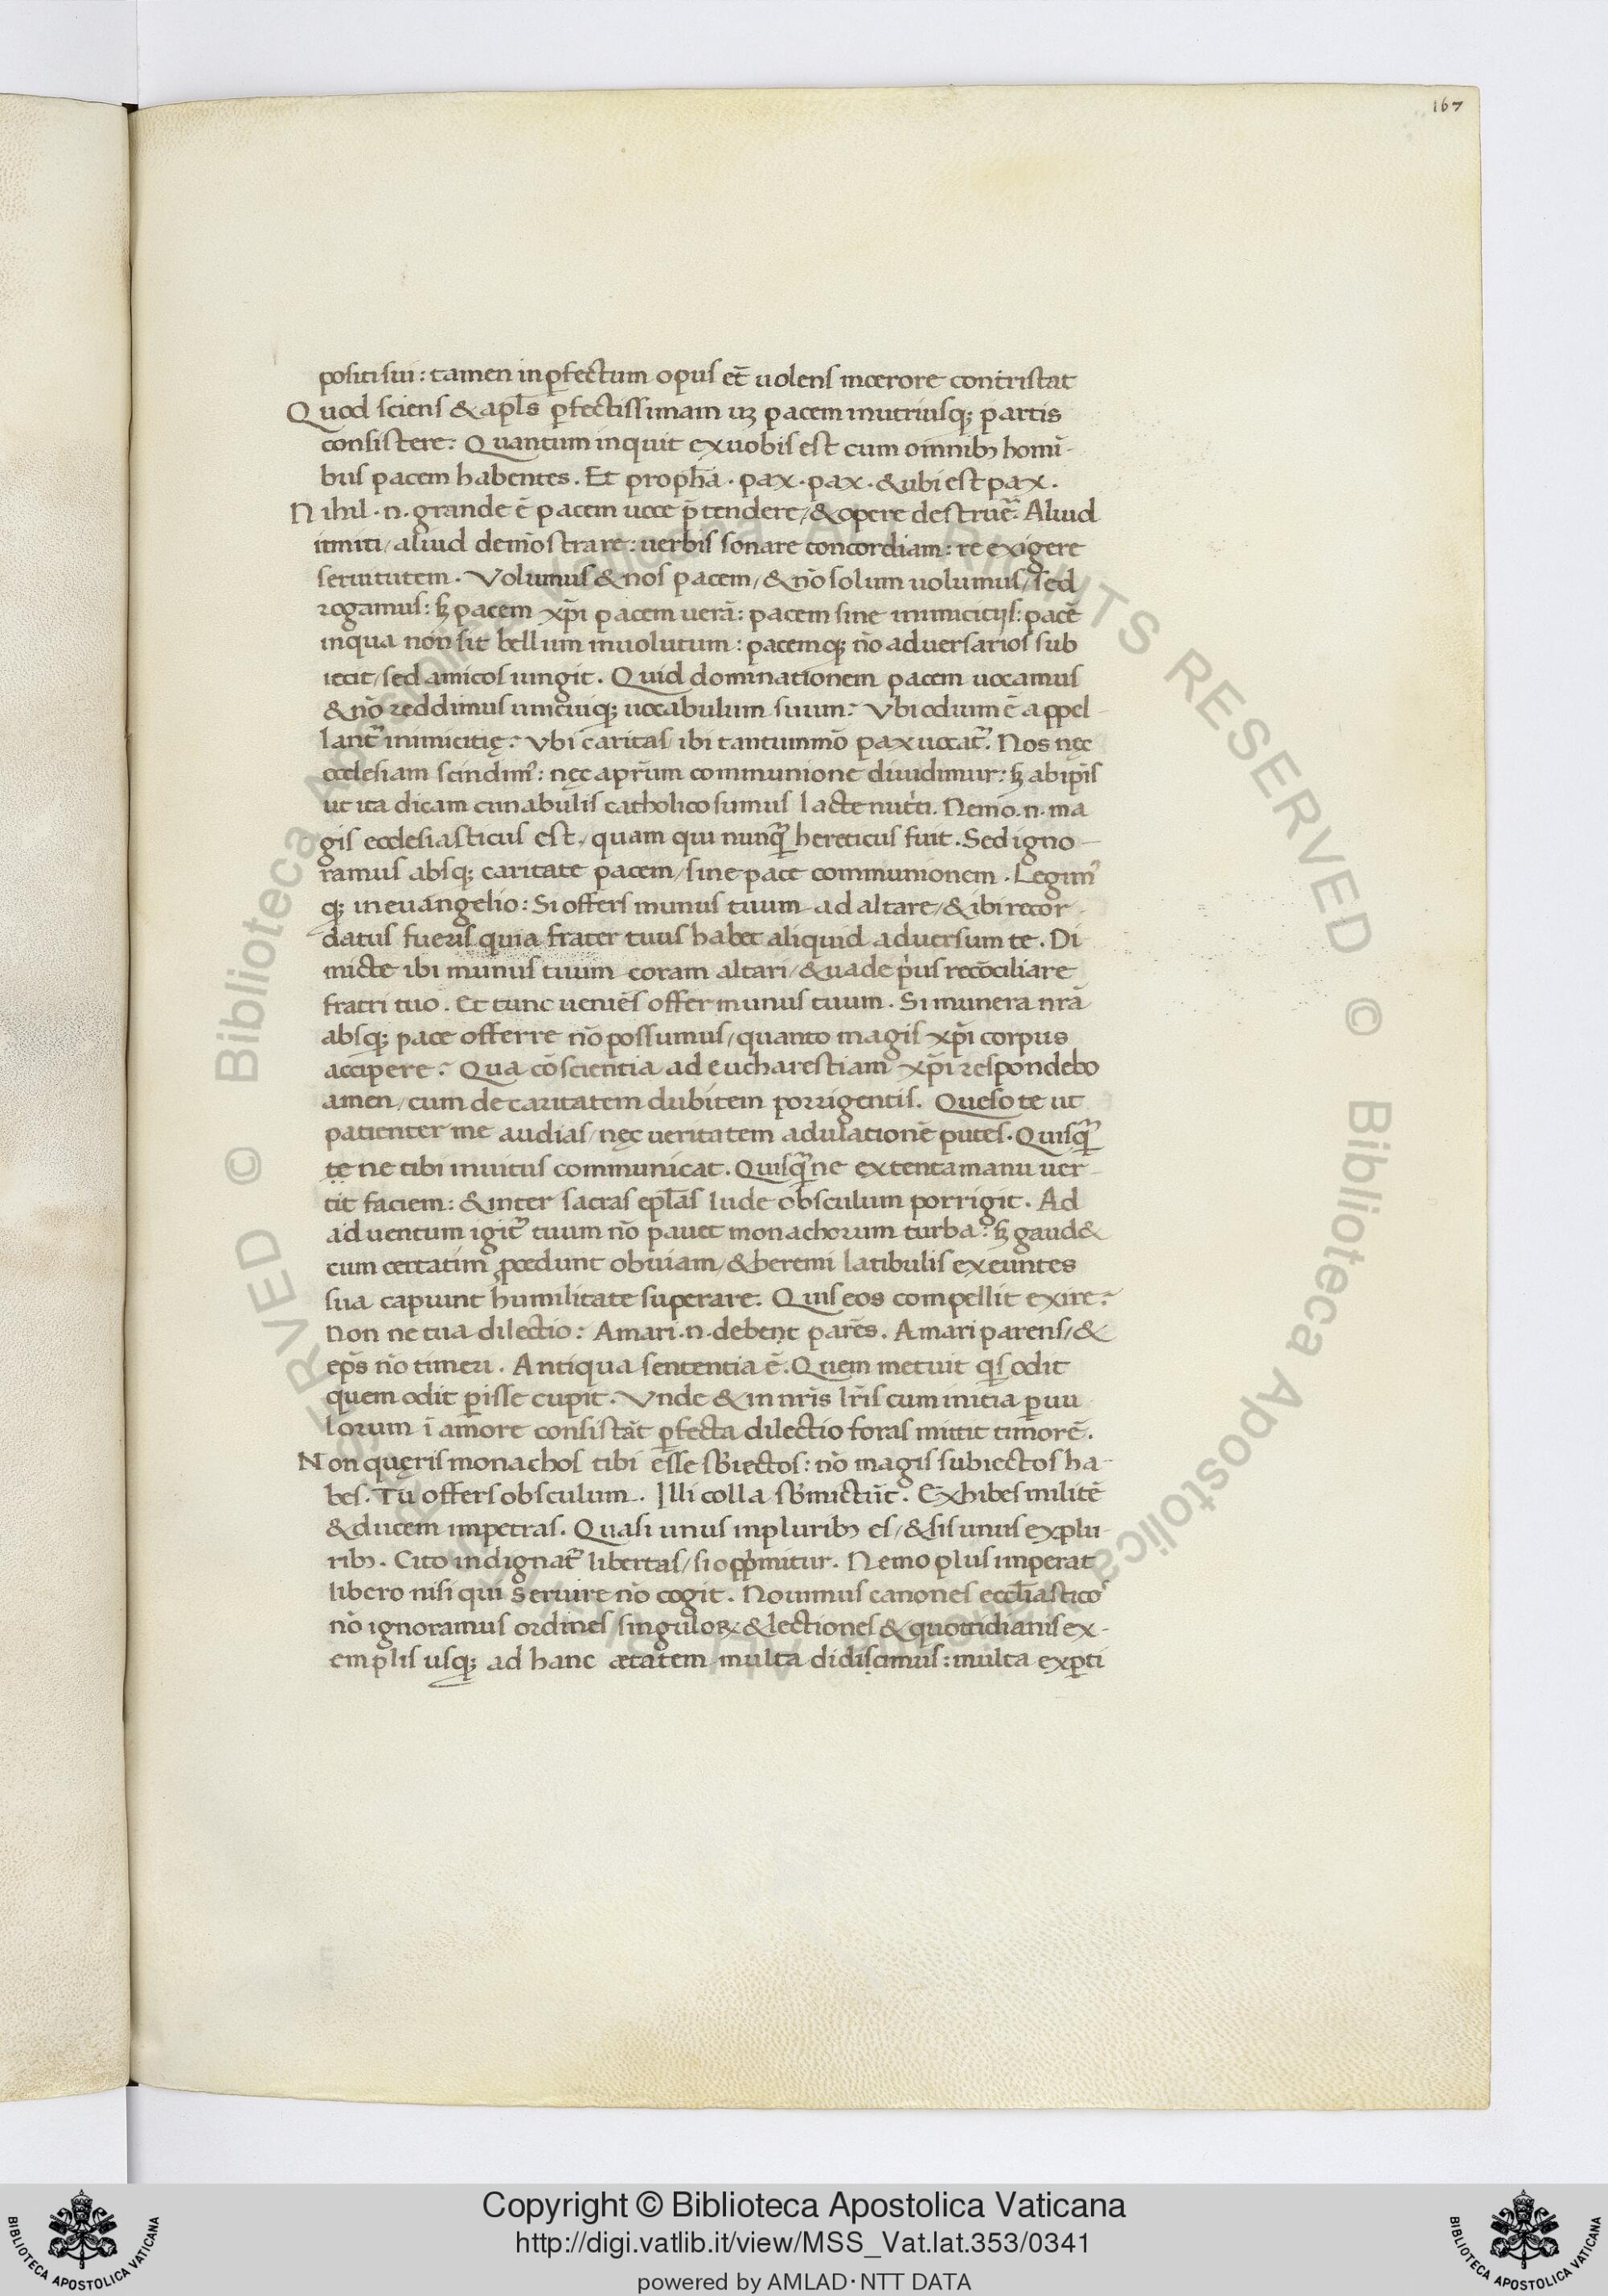 167
positi sui: tamen inp̱fectum opus et̄ uolens mœrore contristat
Quod sciens & apl̄s p̱fectissimam uꝫ pacem inutriusqꝫ partis
consistere: Quantum inquit exuobis est cum omnibꝫ homī-
bus pacem habentes. Et proph̄a. pax. pax. & ubi est pax.
Nihil .n. grande ē pacem uoce p̄tendere/ & opere destruer̄. Aliud
inniti/ aliud demōstrare: uerbis sonare concordiam: re exigere
seruitutem. Volumus & nos pacem/ & nō solum uolumus/ sed
rogamus: sꝫ pacem xp̄i pacem uerā: pacem sine inimicitijs: pacē
inqua non sit bellum inuolutum: pacemqꝫ nō aduersarios sub
iecit/ sed amicos iungit. Quid dominationem pacem uocamus
& nō reddimus unicuiqꝫ uocabulum suum: Vbi odium ē appel-
lant᷑ inimicitię: Vbi caritas/ ibi tantummō pax uocat᷑. Nos nęc
ecclesiam scindim᷒: nęc apr̄um communione diuidimur: sꝫ ab ip̄is
ut ita dicam cunabulis catholico sumus lacte nutⁱti. Nemo .n. ma
gis ecclesiasticus est/ quam qui nunqꝫ̃ hereticus fuit. Sed igno-
ramus absqꝫ caritate pacem/ sine pace communionem. Legim᷒
qꝫ in euangelio: Si offers munus tuum ad altare/ & ibi recor-
datus fueris quia frater tuus habet aliquid aduersum te. Di
micte ibi munus tuum coram altari/ & uade pⁱus recōciliare
fratri tuo. Et tunc ueniēs offer munus tuum. Si munera nr̄a
absqꝫ pace offerre nō possumus/ quanto magis xp̄i corpus
accipere: Qua cōscientia ad eucharestiam xp̄i respondebo
amen/ cum de caritatem dubitem porrigentis. Queso te ut
patienter me audias/ nęc ueritatem adulationē putes. Quisqꝫ̃
te ne tibi inuitus communicat. Quisqꝫ̃ne extenta manu uer-
tit faciem: & inter sacras epl̄as Iude obsculum porrigit. Ad
aduentum igit᷑ tuum nō pauet monachorum turba: sꝫ gaud&
cum certatim ꝓcedunt obuiam/ & heremi latibulis exeuntes
sua capiunt humilitate superare. Quis eos compellit exire:
Non ne tua dilectio: Amari .n. debent parēs. Amari parens/ &
ep̄s nō timeri. Antiqua sententia ē. Quem metuit qⁱs odit
quem odit p̱isse cupit. Vnde & in nr̄is lr̄is cum initia paruu
lorum ī amore consistāt p̱fecta dilectio foras mittit timorē.
Non quęris monachos tibi esse sb̄iectos: nō magis subiectos ha-
bes. Tu offers obsculum. Illi colla sb̄mictūt. Exhibes militē
& ducem impetras. Quasi unus inpluribꝫ es/ & sis unus explu-
ribꝫ. Cito indignat᷑ libertas/ si oppⁱmitur. Nemo plus imperat
libero nisi qui seruire nō cogit. Nouimus canones eccl̄iastico᷒
nō ignoramus ordines singuloꝝ & lectiones & quottidianis ex-
emplis usqꝫ ad hanc ætatem multa didiscimus: multa exp̱ti
Copyright © Biblioteca Apostolica Vaticana
http://digi.vatlib.it/view/MSS_Vat.lat.353/0341
powered by AMLAD·NTT DATA